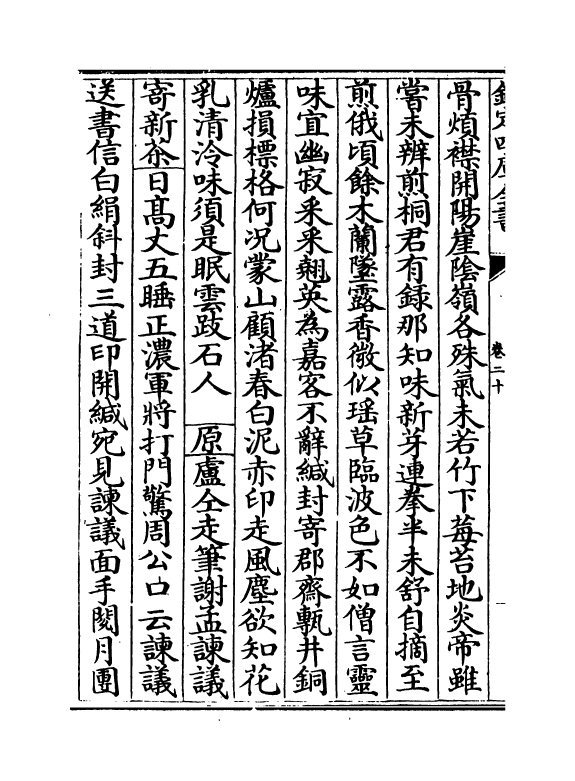 卷二十
骨煩襟開陽崖陰嶺各殊氣未若竹下莓苔地炎帝雖
嘗未辨煎桐君有録那知味新芽連拳半未舒自摘至
煎俄頃餘木蘭墜露香微似瑶草臨波色不如僧言靈
味宜幽寂采采翹英為嘉客不辭緘封寄郡齋甎井銅
爐損標格何況蒙山顧渚春白泥赤印走風塵欲知花
乳清泠味須是眠雲跂石人 原盧仝走筆謝孟諫議
寄新茶日髙丈五睡正濃軍將打門驚周公口云諫議
送書信白絹斜封三道印開緘宛見諫議面手閱月團